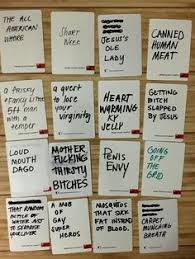 THE ALL
AMERICAN
WHORE
Short
Week
JESUS'S
OLE
LADY
CANNED
HUMAN
MEAT
a thirsty
5ft man
with a
temper
a quest
to lose
your
virginity
THE
HEART
WARMING
KY
JELLY
GETTING
BITCH
SLAPPED
BY JESUS
LOUD
MOUTH
DAGO
MOTHER
FUCKING
THIRSTY
BITCHES
PENIS
ENVY
GOING
OFF
THE
GRID
THAT RANDOM
BOTTLE OF
WATER ART
TO
A MOB
OF
GAY
SUPER
HEROS
MOSQUITOS
THAT SUCK
FAT INSTEAD
OF BLOOD.
CARPET
MUNCHING
BREATH